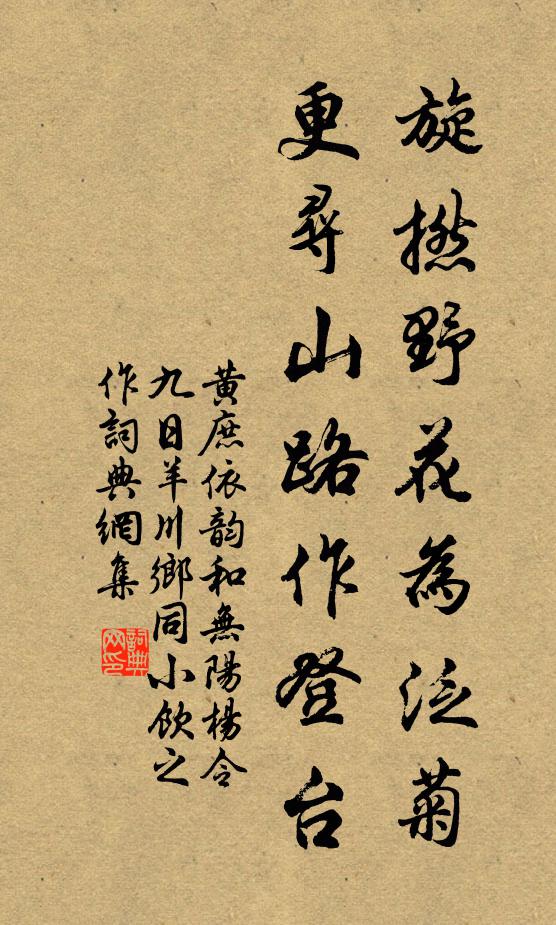 旋撚野花為泛菊
更尋山路作登台
黃庶依韵和無陽楊令
九日羊川鄉同小飲之
作詞典網集
詞典网印